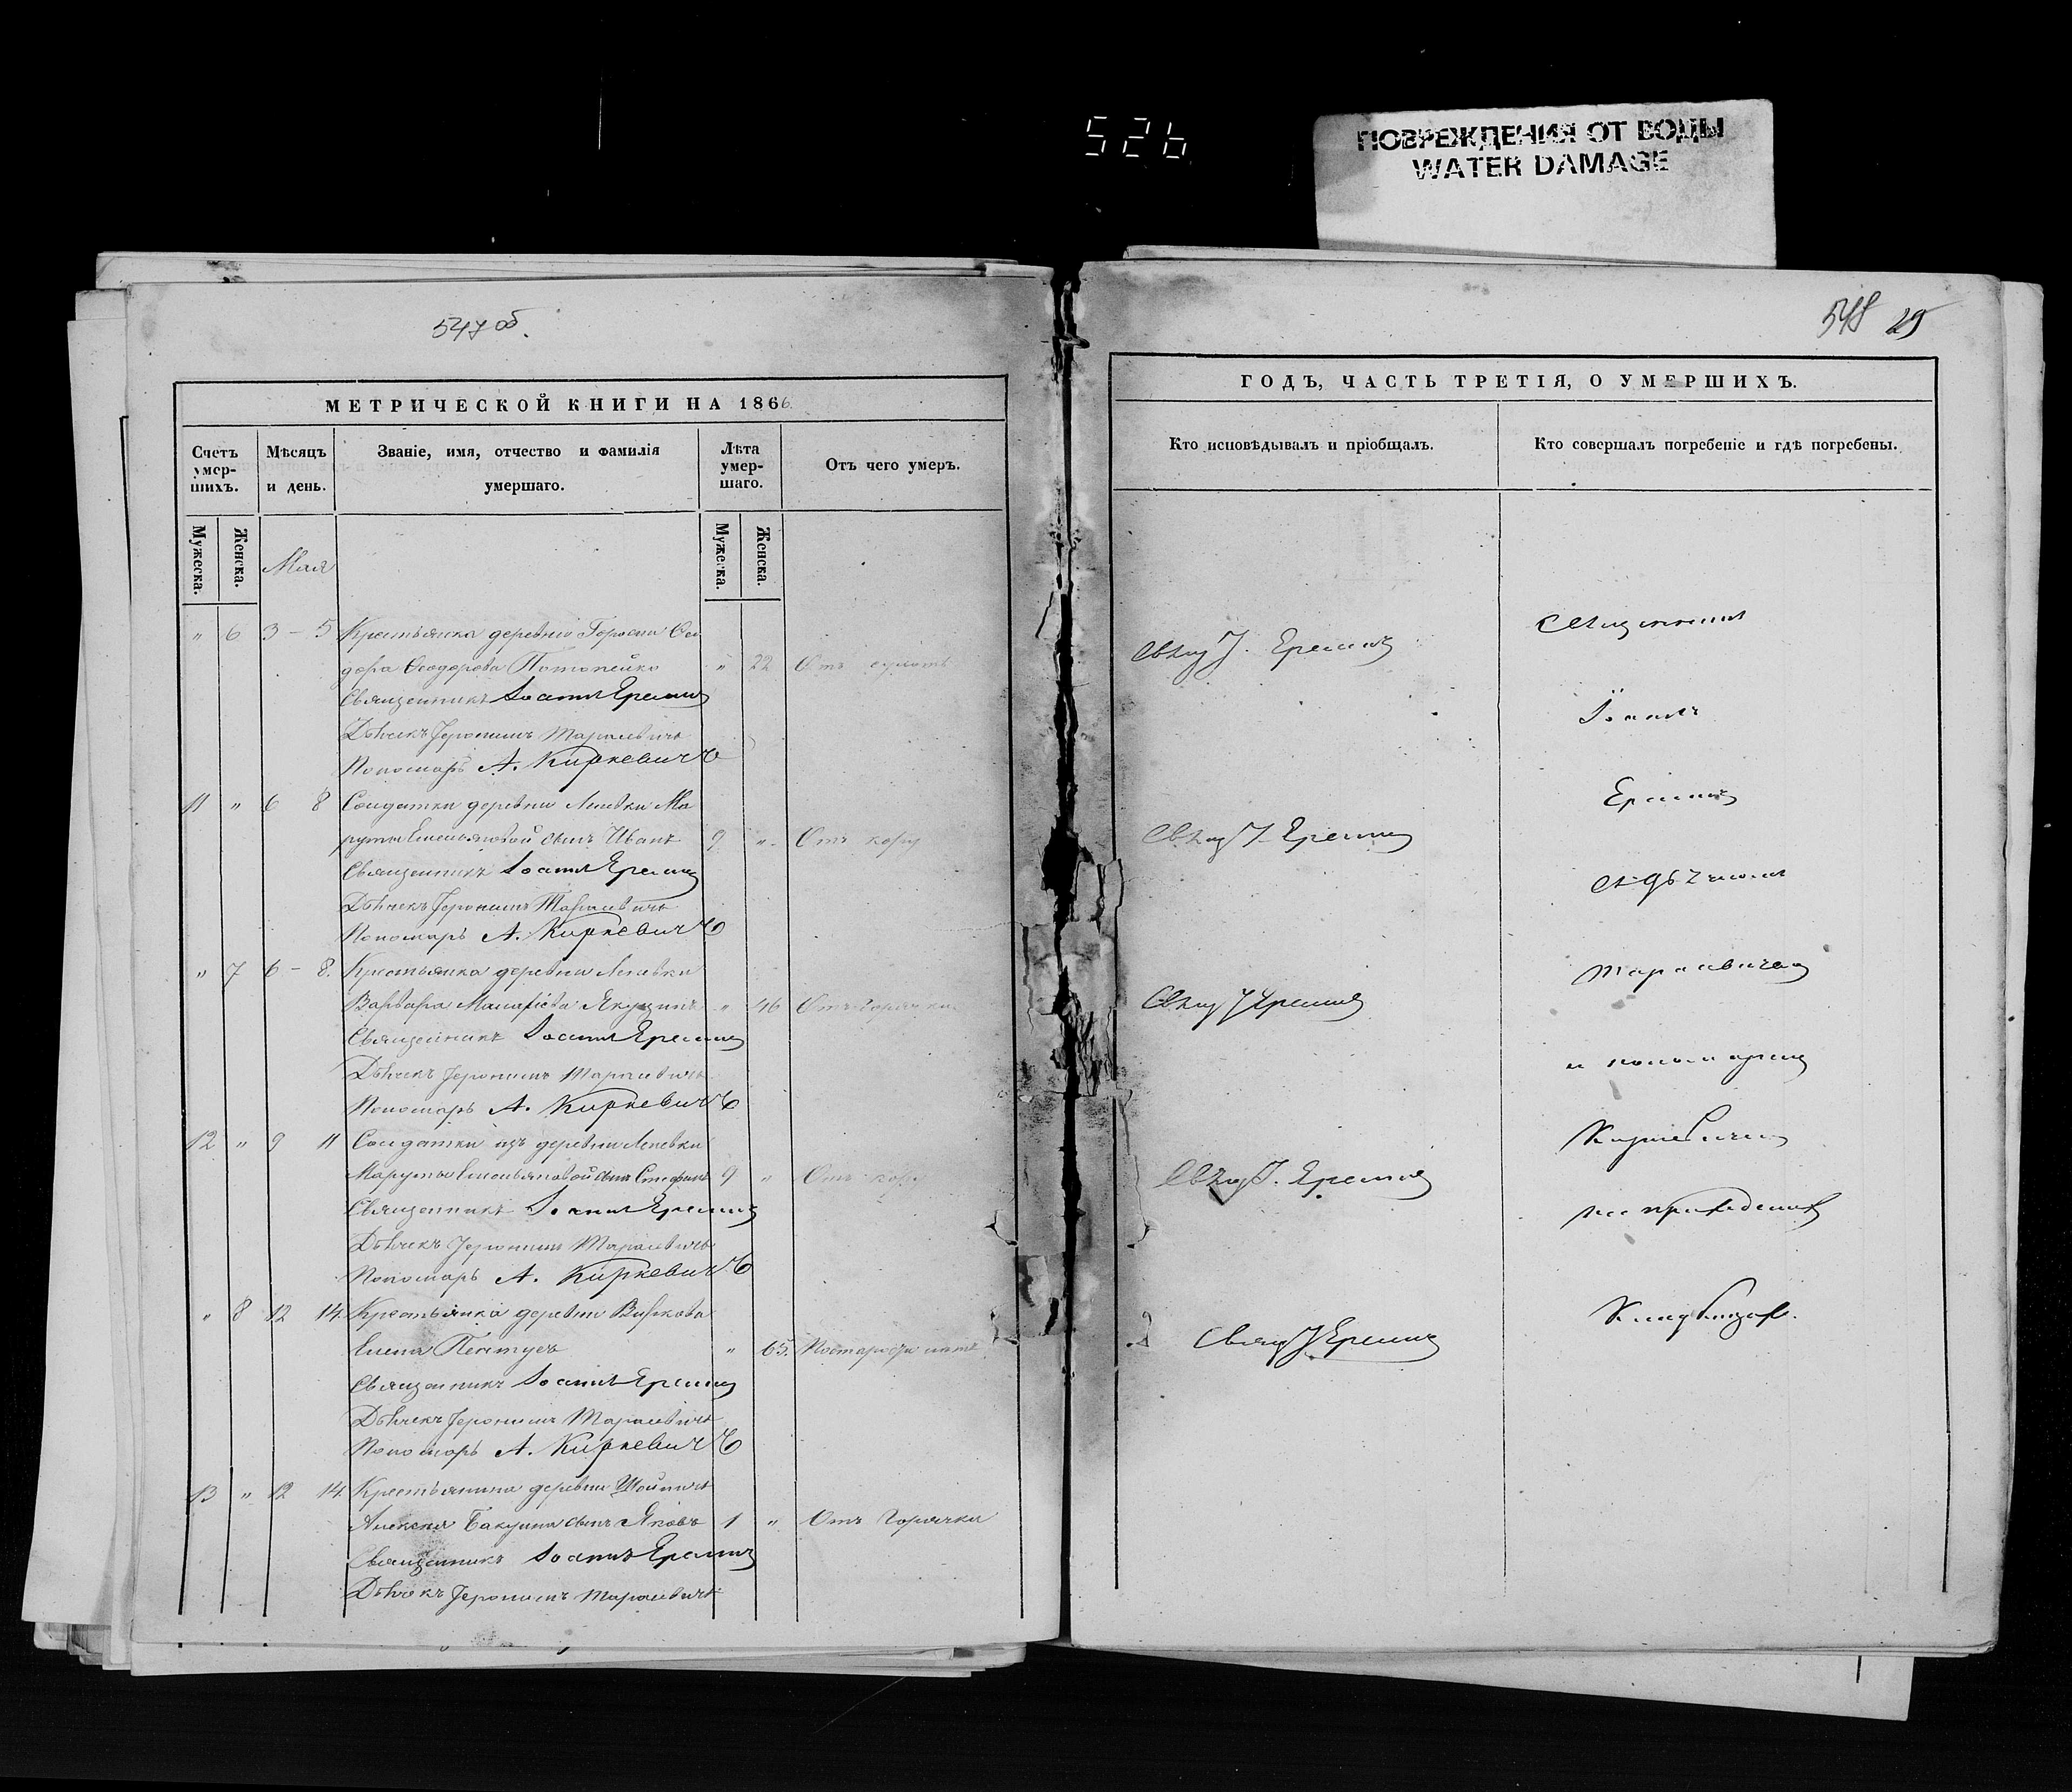 526
ПОВРЕЖДЕНИЯ ОТ ВОДЫ
WATER DAMAGE
547 об.
МЕТРИЧЕСКОЙ КНИГИ НА 1866
Счетъ умер-шихъ.
Мѣсяцъ и день.
Званіе, имя, отчество и фамилія умершаго.
Лѣта умер-шаго.
Отъ чего умеръ.
Мужеска.
Женска.
Мужеска.
Женска.
Мая
" 6 3 - 5 Крестьянка деревни Ѳео
дора Ѳеодорова Потопейко " 22 Отъ
Священникъ Іоаннъ Еремичъ
Дьячекъ Іеронимъ Тарасевичъ
Пономарь А. Киркевичъ
11 " 6 8 Солдатки деревни Лепевки Ма
руты Емельяновой сынъ Иванъ 9 " Отъ кору
Священникъ Іоаннъ Еремичъ
Дьячекъ Іеронимъ Тарасевичъ
Пономарь А. Киркевичъ
" 7 6 - 8. Крестьянка деревни Лепевки
Варвара " 46 Отъ горячки
Священникъ Іоаннъ Еремичъ
Дьячекъ Іеронимъ Тарасевичъ
Пономарь А. Киркевичъ
12 " 9 11 Солдатки изъ деревни Лепевки
Маруты Емельяновой сынъ Стефанъ 9 " Отъ кору
Священникъ Іоаннъ Еремичъ
Дьячекъ Іеронимъ Тарасевичъ
Пономарь А. Киркевичъ
" 8 12 14. Крестьянка деревни
Елена " 65.
Священникъ Іоаннъ Еремичъ
Дьячекъ Іеронимъ Тарасевичъ
Пономарь А. Киркевичъ
13 " 12 14 Крестьянина деревни
Алексея Бакуна сынъ Яковъ 1 " Отъ горячки
Священникъ Іоаннъ Еремичъ
Дьячекъ Іеронимъ Тарасевичъ
548 25
ГОДЪ, ЧАСТЬ ТРЕТІЯ, О УМЕРШИХЪ.
Кто исповѣдывалъ и пріобщалъ.
Кто совершалъ погребеніе и гдѣ погребены.
Свящ І. Еремичъ
Свящ І. Еремичъ
Свящ І Еремичъ
Свящ І. Еремичъ
Свящ І Еремичъ
Священникъ
Іоаннъ
Еремичъ
съ дьячкомъ
Тарасевичемъ
и пономаремъ
Киркевичемъ
на приходскихъ
Кладбищахъ.